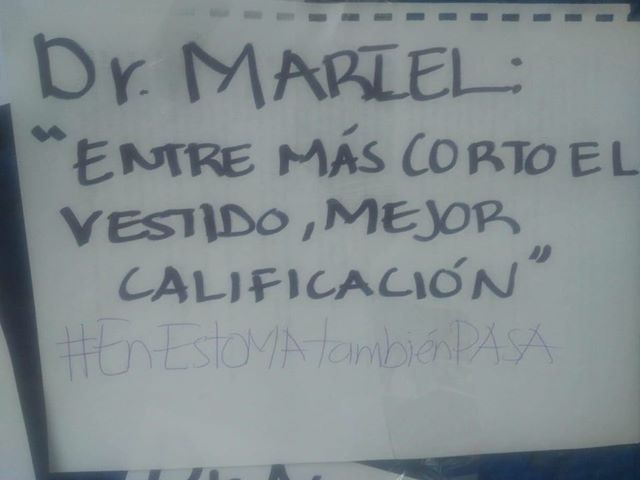 Dr. MARIEL:
"ENTRE MÁS CORTO EL
VESTIDO, MEJOR
CALIFICACIÓN"
#EnEstoMAtambiénPASA